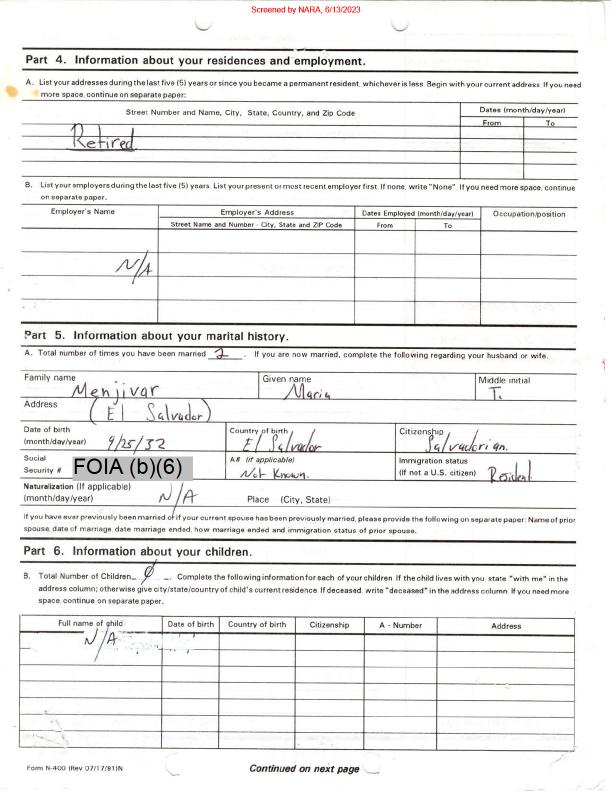 Screened by NARA, 6/13/2023
Part 4. Information about your residences and employment.
A. List your addresses during the last five (5) years or since you became a permanent resident, whichever is less. Begin with your current address. If you need
more space, continue on separate paper:
Street Number and Name, City, State, Country, and Zip Code
Dates (month/day/year)
From To
Retired
B. List your employers during the last five (5) years. List your present or most recent employer first. If none, write "None". If you need more space, continue
on separate paper.
Employer's Name Employer's Address Dates Employed (month/day/year) Occupation/position
Street Name and Number - City, State and ZIP Code From To
N/A
Part 5. Information about your marital history.
A. Total number of times you have been married . If you are now married, complete the following regarding your husband or wife.
Family name Given name Middle initial
Menjivar Maria T.
Address
(El Salvador)
Date of birth Country of birth Citizenship
(month/day/year) 9/25/32 El Salvador Salvadorian.
Social A# (if applicable) Immigration status
Security # FOIA (b)(6) Not Known. (If not a U.S. citizen) Resident
Naturalization (If applicable)
(month/day/year) N/A Place (City, State)
If you have ever previously been married or if your current spouse has been previously married, please provide the following on separate paper: Name of prior
spouse, date of marriage, date marriage ended, how marriage ended and immigration status of prior spouse.
Part 6. Information about your children.
B. Total Number of Children 0 . Complete the following information for each of your children. If the child lives with you, state "with me" in the
address column; otherwise give city/state/country of child's current residence. If deceased, write "deceased" in the address column. If you need more
space, continue on separate paper.
Full name of child Date of birth Country of birth Citizenship A - Number Address
N/A
Form N-400 (Rev 07/17/91)N Continued on next page